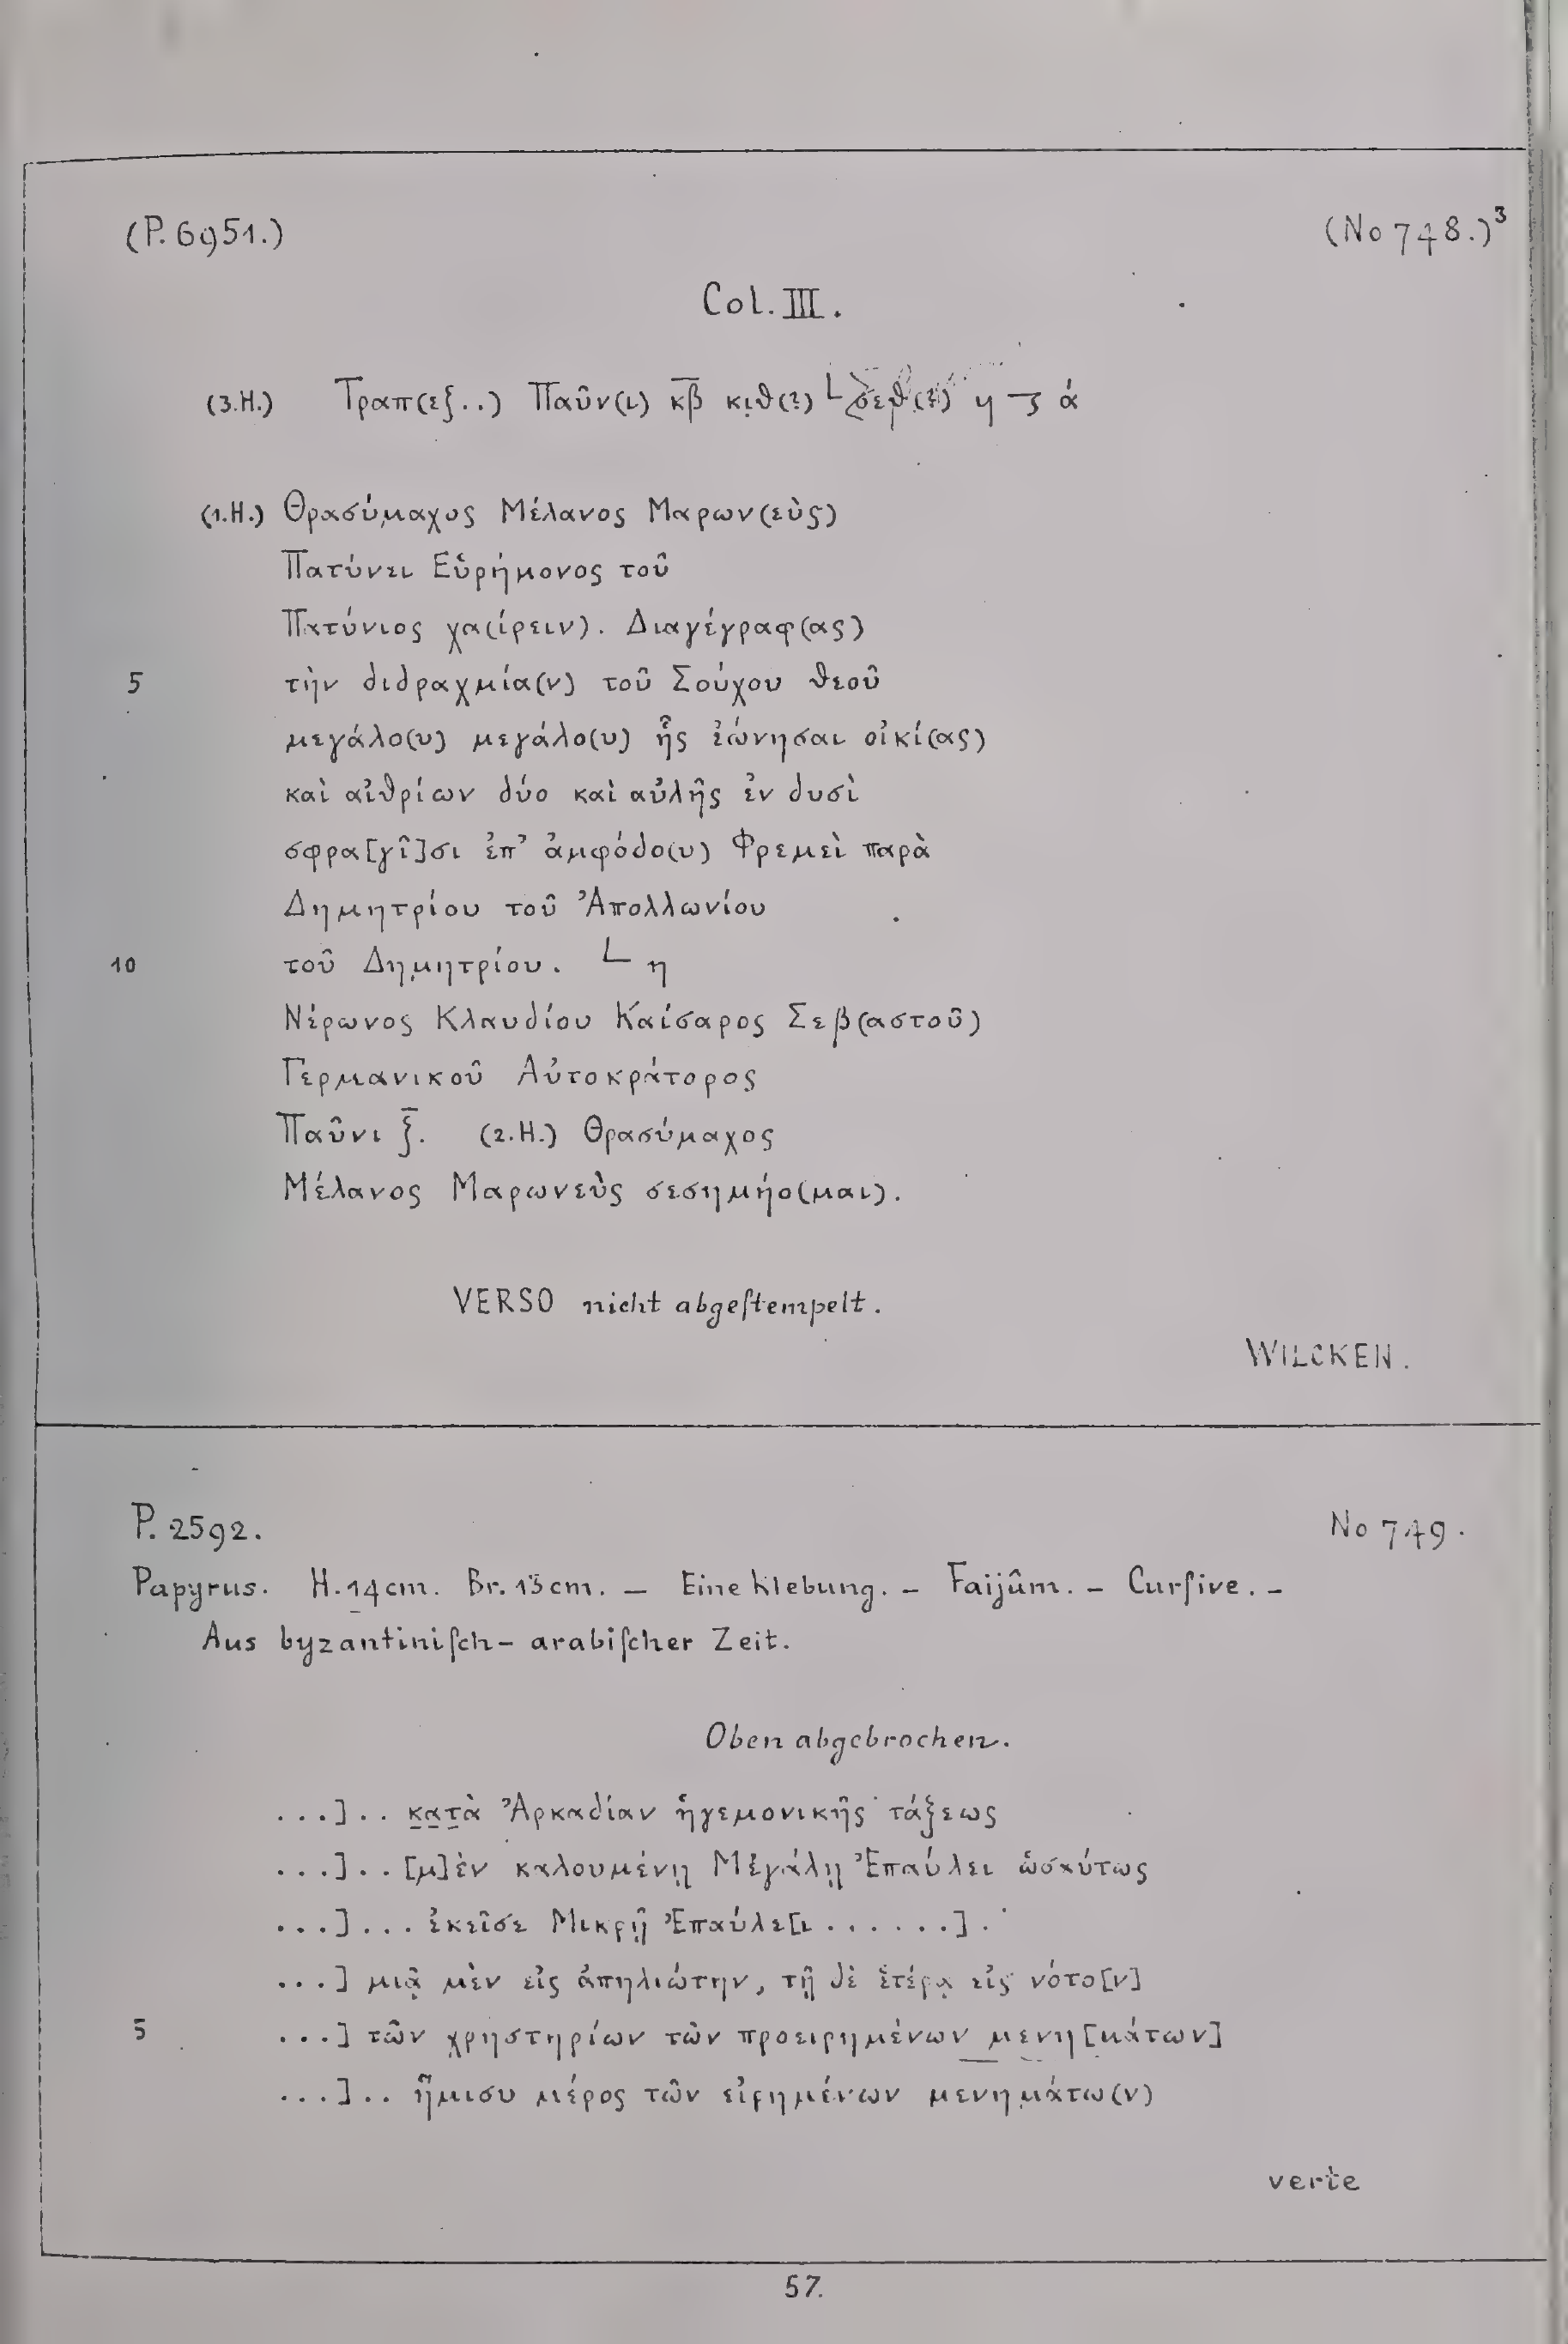 (P. 6951.)
(No 748.)³
Col. III.
(3.H.) Τραπ(εξ..) Παῦν(ι) κ̅β̅ κιθ(?) L σεθ(?) η ά
(1.H.) Θρασύμαχος Μέλανος Μαρων(εὺς)
Πατύνει Εὑρήμονος τοῦ
Πατύνιος χα(ίρειν). Διαγέγραφ(ας)
5 τὴν διδραχμία(ν) τοῦ Σούχου θεοῦ
μεγάλο(υ) μεγάλο(υ) ἧς ἐώνησαι οἰκί(ας)
καὶ αἰθρίων δύο καὶ αὐλῆς ἐν δυσὶ
σφρα[γῖ]σι ἐπ' ἀμφόδο(υ) Φρεμεὶ παρὰ
Δημητρίου τοῦ Ἀπολλωνίου
10 τοῦ Δημητρίου. L η
Νέρωνος Κλαυδίου Καίσαρος Σεβ(αστοῦ)
Γερμανικοῦ Αὐτοκράτορος
Παῦνι ξ̅. (2.H.) Θρασύμαχος
Μέλανος Μαρωνεὺς σεσημήο(μαι).
VERSO nicht abgeſtempelt.
WILCKEN.
P. 2592.
No 749.
Papyrus. H. 14 cm. Br. 13 cm. – Eine Klebung. – Faijûm. – Curſive. –
Aus byzantiniſch-arabiſcher Zeit.
Oben abgebrochen.
...].. κ̣α̣τ̣ὰ Ἀρκαδίαν ἡγεμονικῆς τάξεως
...].. [μ]ὲν καλουμένῃ Μεγάλῃ Ἐπαύλει ὡσαύτως
...]... ἐκεῖσε Μικρῇ Ἐπαύλε[ι ......].
...] μιᾷ μὲν εἰς ἀπηλιώτην, τῇ δὲ ἑτέρᾳ εἰς νότο[ν]
5 ...] τῶν χρηστηρίων τῶν προειρημένων μενη[μάτων]
...].. ἥμισυ μέρος τῶν εἰρημένων μενημάτω(ν)
verte
57.